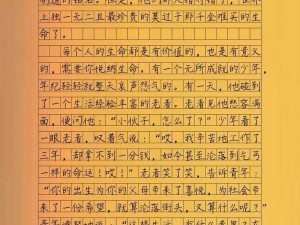 上独一无二且最珍贵的莫过于那千金难买的生
命了。
每个人的生命都是有价值的，也是有意义
的，需要你悦纳生命。有一个无所成就的少年，
年纪轻轻就整天哀声怨气的。有一天，他碰到
了一个生活经验丰富的老者。老者见他愁容满
面，便问他：“小伙子，怎么了？”少年看了
一眼老者，叹着气说：“哎，我辛苦地工作了
三年，却拿不到一分钱，如今甚至沦落到乞丐
一样的命运！哎！”老者笑了笑，告诉青年：
“你的出生为你的父母带来了喜悦，为社会带
来了一份希望，就算沦落街头，又算什么呢？”